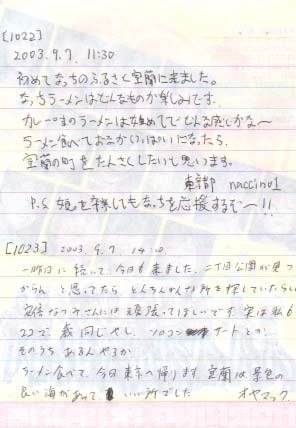 [1022]
2003.9.7. 11:30
初めてなっちのふるさと室蘭に来ました。
なっちラーメンはどんなものか楽しみです。
カレー のラーメンは始めてでどんな感じかな〜
ラーメン食べておなかいっぱいになったら、
室蘭の町をたんさくしたいと思います。
東京都 naccino1
P.S. 娘を卒業してもなっちを応援するぞ〜!!
[1023] 2003.9.7. 14:00
一昨日に続いて、今日も来ました。二丁目公園が見つ
からん、と思ってたら とんちんかんな所を探していたらしい
安倍なつみさんには頑張ってほしいです。実は私も
22で、歳同じやし、ソロコン サートとか、
そのうち あるんやろか
ラーメン食べて、今日東京へ帰ります。室蘭は景色の
良い海があって、 いい所でした オヤマック